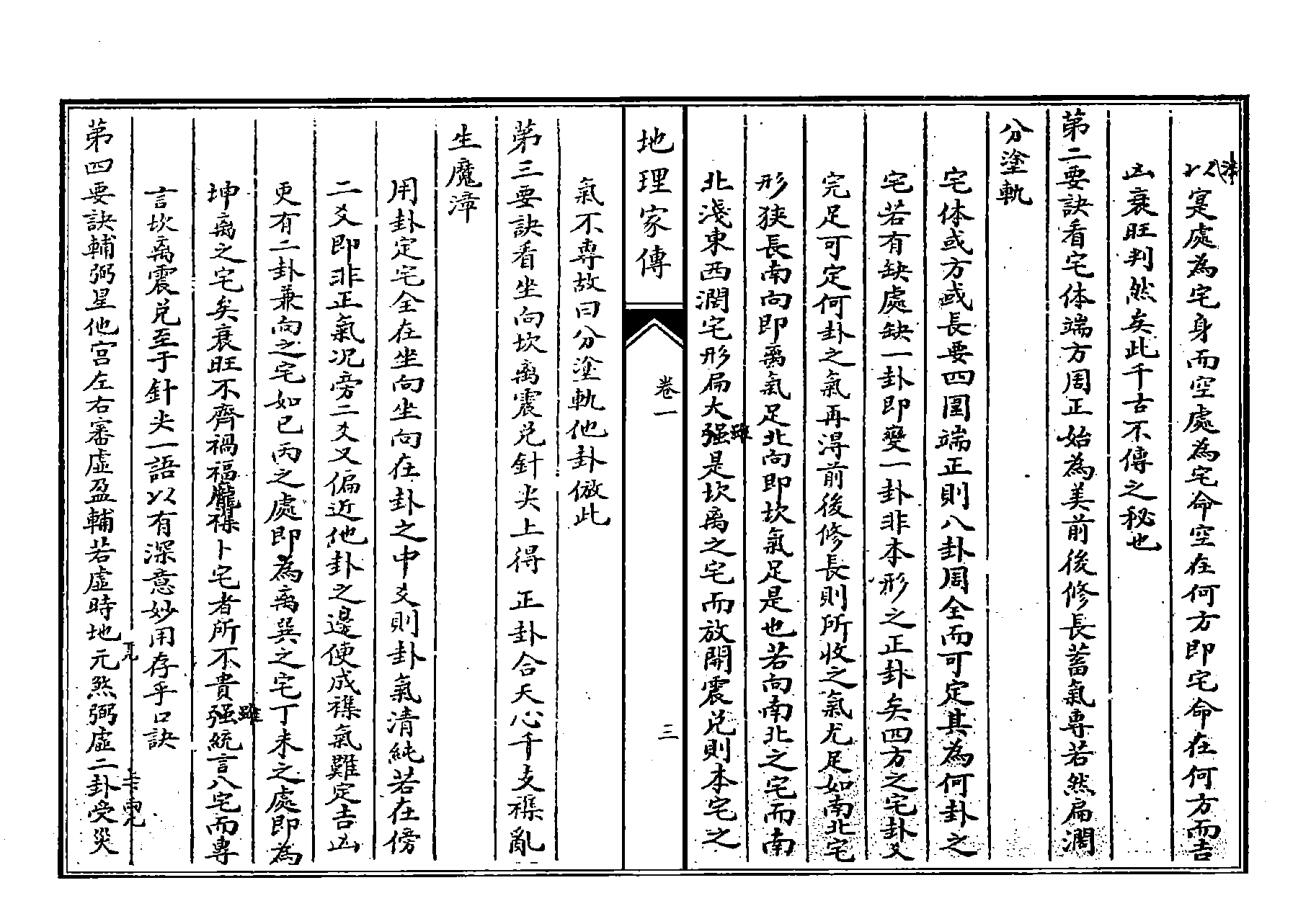 以實處為宅身而空處為宅命空在何方即宅命在何方而吉
凶衰旺判然矣此千古不傳之秘也
第二要訣看宅体端方周正始為美前後修長蓄氣專若然扁濶
分塗軌
宅体或方或長要四圍端正則八卦周全而可定其為何卦之
宅若有缺處缺一卦即變一卦非本形之正卦矣四方之宅卦爻
完足可定何卦之氣再得前後修長則所收之氣尤足如南北宅
形狹長南向即离氣足北向即坎氣足是也若向南北之宅而南
北淺東西濶宅形扁大强雖是坎离之宅而放開震兌則本宅之
地理家傳
卷一
三
氣不專故曰分塗軌他卦倣此
第三要訣看坐向坎离震兌針尖上得正卦合天心干支襍亂
生魔漳
用卦定宅全在坐向坐向在卦之中爻則卦氣清純若在傍
二爻即非正氣况旁二爻又偏近他卦之邊使成襍氣難定吉凶
更有二卦兼向之宅如巳丙之處即為离巽之宅丁未之處即為
坤离之宅矣衰旺不齊禍福龐襍卜宅者所不貴强雖統言八宅而專
言坎离震兌至于針尖一語以有深意妙用存乎口訣
第四要訣輔弼星他宫左右審虛盈輔若虛時地元煞弼虛二卦受災